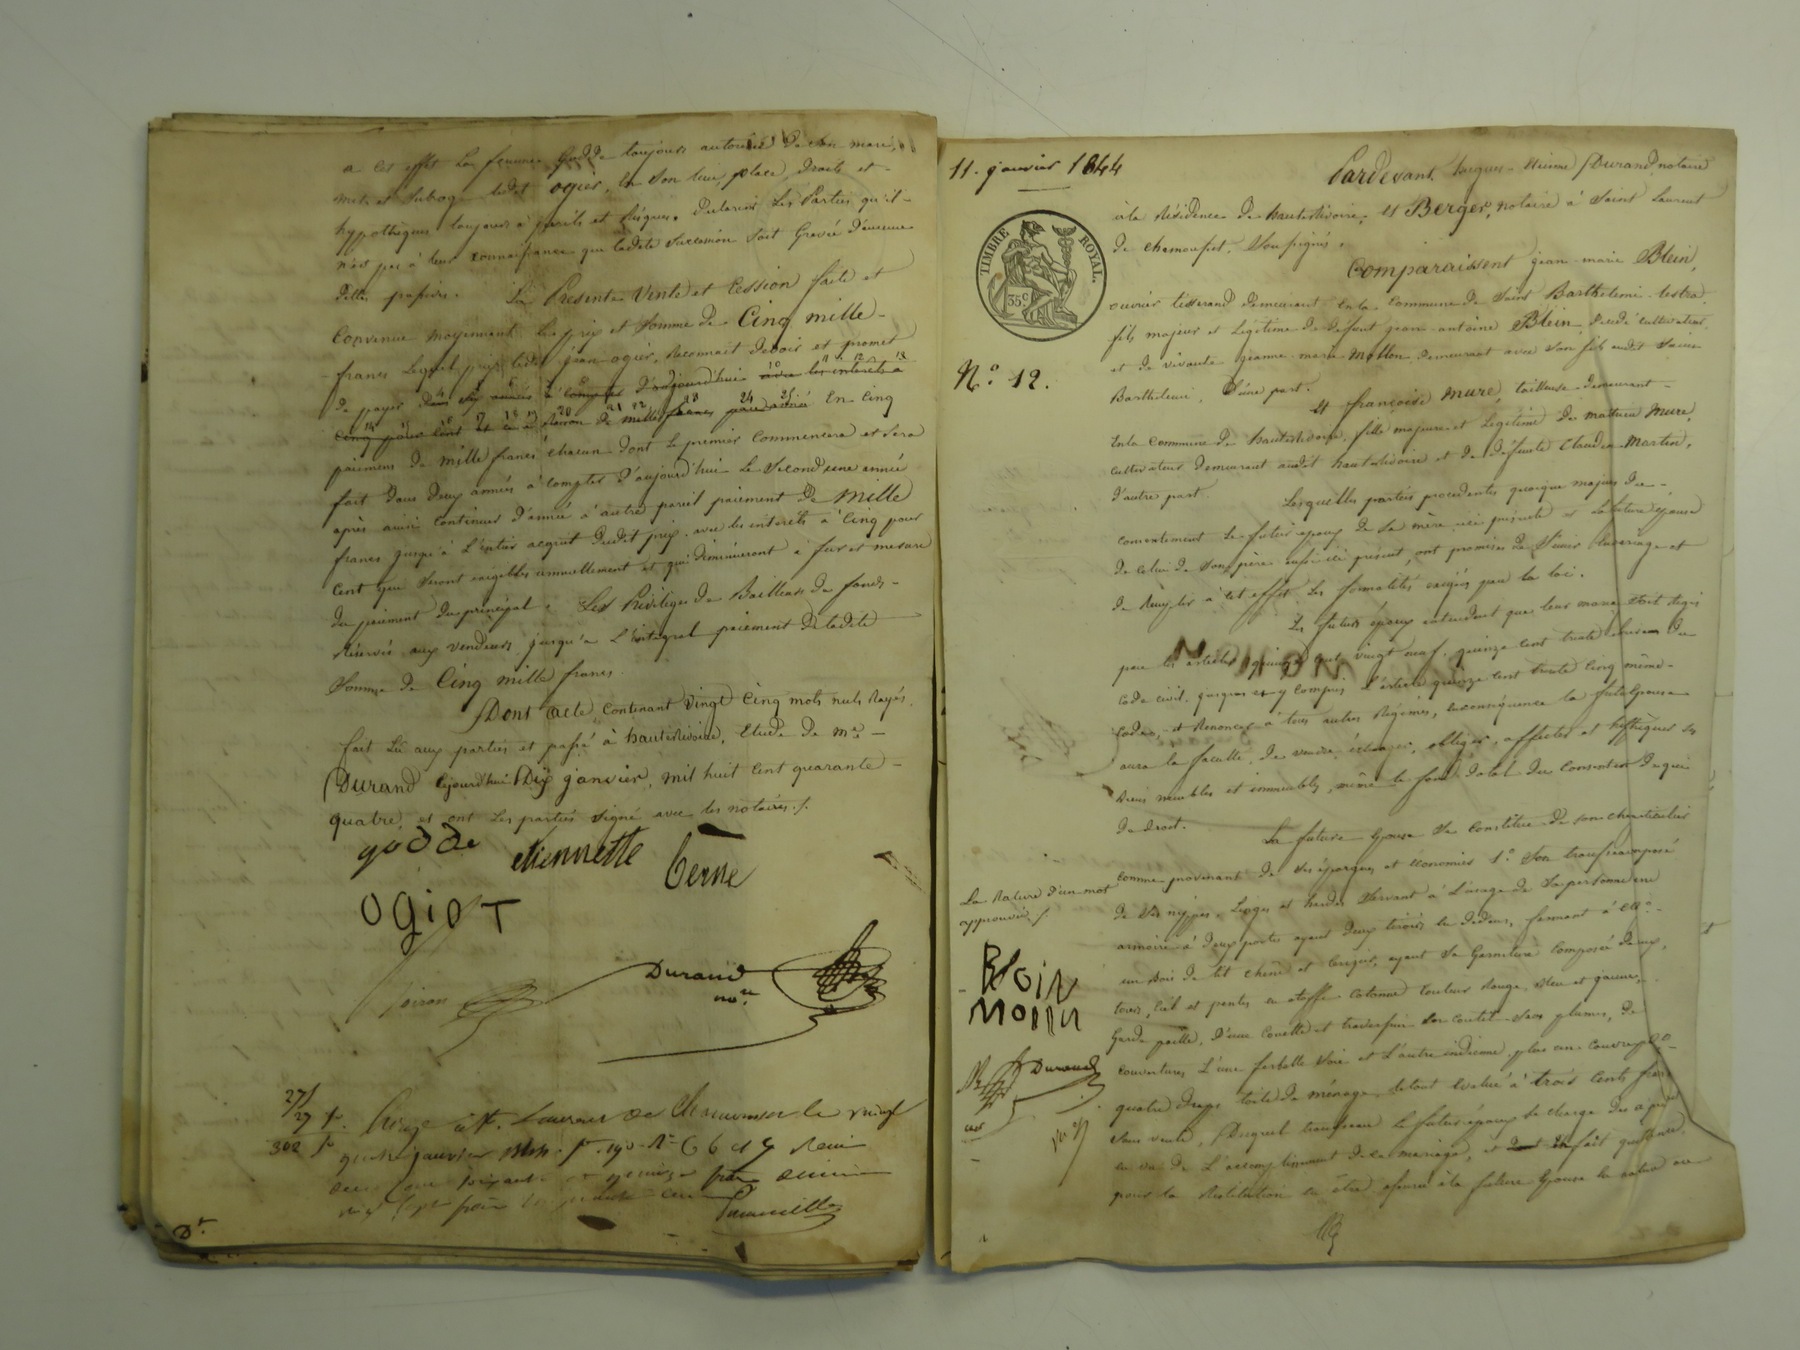 a cet effet la femme Godde toujours autorisée de son mari,
met et subroge ledit ogier, en son lieu, place, droits et
hypothèques toujours à périls et risques. Déclarent les Parties qu'il
n'est pas à leur connaissance que ladite succession soit Grevée d'aucunes
dettes passives. La Présente Vente et Cession faite et
Convenue moyennant le prix et somme de Cinq mille
francs Lequel prix ledit jean ogier, Reconnait devoir et promet
de payer dans six années à compter d'aujourd'hui avec les intérêts à
cinq pour cent et ce à Raison de mille francs par année En Cinq
paiemens de mille francs chacun dont le premier Commencera et sera
fait dans deux années à compter d'aujourd'hui le Second une année
après ainsi continuer d'année à autre pareil paiement de mille
francs jusqu'à l'entier acquit dudit prix avec les intérêts à Cinq pour
cent qui seront exigibles annuellement et qui diminueront à fur et mesure
du paiement du principal. Les Privilèges de Bailleur de fonds
Réservés aux vendeurs jusqu'à L'intégral paiement de ladite
Somme de Cinq mille francs.
Dont acte, contenant vingt cinq mots nuls Rayés,
fait Lu aux parties et passé à hauterivoire, Etude de me
Durand Cejourd'hui Dix janvier, mil huit cent quarante
quatre, et ont les parties signé avec les notaires./.
godde etiennette berne
OGIOT
Durand
nore
27
27
302
D.r
11. janvier 1844
TIMBRE ROYAL.
35c
No. 12.
Pardevant Jacques-Etienne Durand notaire
à la Résidence de hauterivoire, et Berger, notaire à Saint Laurent
de chamousset, Soussignés,
Comparaissent jean-marie Blein,
ouvrier tisserand demeurant en la Commune de Saint Barthelemi-Lestra
fils majeur et Légitime de défunt jean-antoine Blein décédé cultivateur
et de vivante jeanne-marie Mollon demeurant avec son fils audit Saint
Barthelemi, d'une part.
Et françoise Mure, tailleuse demeurant
en la commune de hauterivoire, fille majeure et Légitime de mathieu Mure,
cultivateur demeurant audit hauterivoire et de défunte Claudine Martin,
d'autre part.
Lesquelles parties procédantes quoique majeurs du
consentement le futur époux de sa mère ici présente et la future épouse
de celui de son père aussi ici présent, ont promises de s'unir en mariage et
de Remplir à cet effet les formalités exigées par la loi.
Les futurs époux entendent que leur mariage soit régis
par les articles quinze cent vingt neuf, quinze cent trente du
code civil, jusques et y compris L'article quinze cent trente cinq même
Code, et Renoncer à tous autres Régimes, en conséquence la future épouse
aura la faculté de vendre, échanger, obliger, affecter et hipothéquer ses
Biens meubles et immeubles, même le fond dotal du Consentement de qui
de droit.
La future épouse se constitue de son chef particulier
comme provenant de ses épargnes et économies 1o. Son trousseau composé
de ses nippes, Linges et hardes Servant à L'usage de sa personne une
armoire à deux portes ayant deux tiroirs en dedans, fermant à clé,
un Bois de Lit chêne et Cerisier, ayant sa Garniture composée de
tour, Ciel et pentes en étoffe cotonne Couleur Rouge, Bleu et jaune,
Garde paille, d'une Couette et traversin en coutil Sans plumes, de
couvertures L'une farbelle Soie et L'autre indienne, plus un Couvrepied
quatre draps toile de ménage, letout Evalué à trois Cents francs
Sans vente, Duquel trousseau le futur époux se charge dès à présent
en vu de L'accomplissement de ce mariage, et en fait quittance
pour la Restitution en être assurée à la future épouse la nature ou
La Rature d'un mot
approuvée ./.
Bloin
Durand